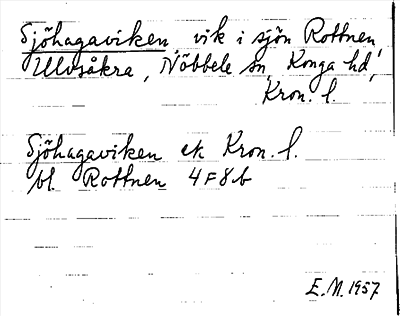 Sjöhagaviken, vik i sjön Rottnen,
Ulvsåkra, Nöbbele sn, Konga hd,
Kron. l.
Sjöhagaviken ek Kron. l.
bl. Rottnen 4F8b
E.N. 1957